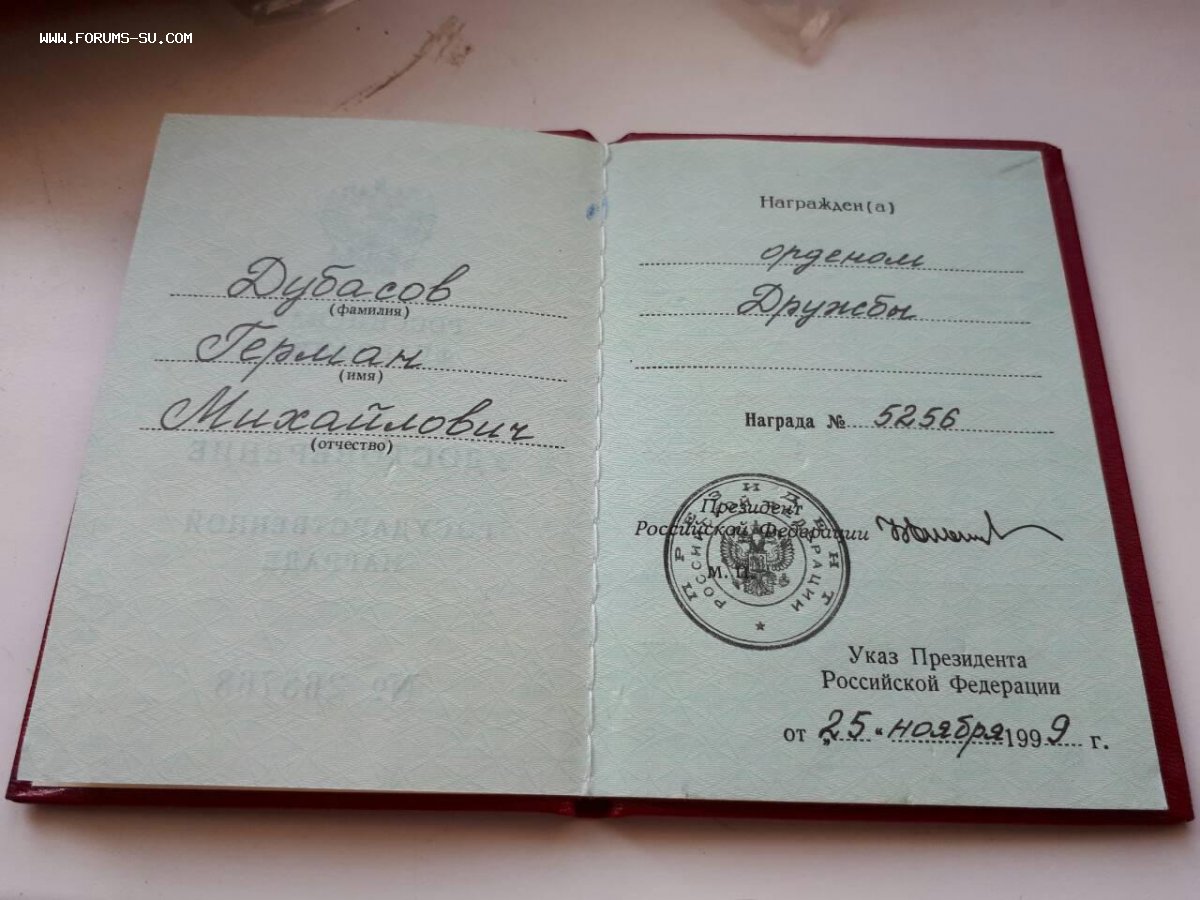 WWW.FORUMS-SU.COM
Дубасов
(фамилия)
Герман
(имя)
Михайлович
(отчество)
УДОСТОВЕРЕНИЕ
О ГОСУДАРСТВЕННОЙ
НАГРАДЕ
Награжден(а)
орденом
Дружбы
Награда № 5256
Президент
Российской Федерации
М. П.
ПРЕЗИДЕНТ
РОССИЙСКОЙ ФЕДЕРАЦИИ
Указ Президента
Российской Федерации
от „25“ ноября 1999 г.